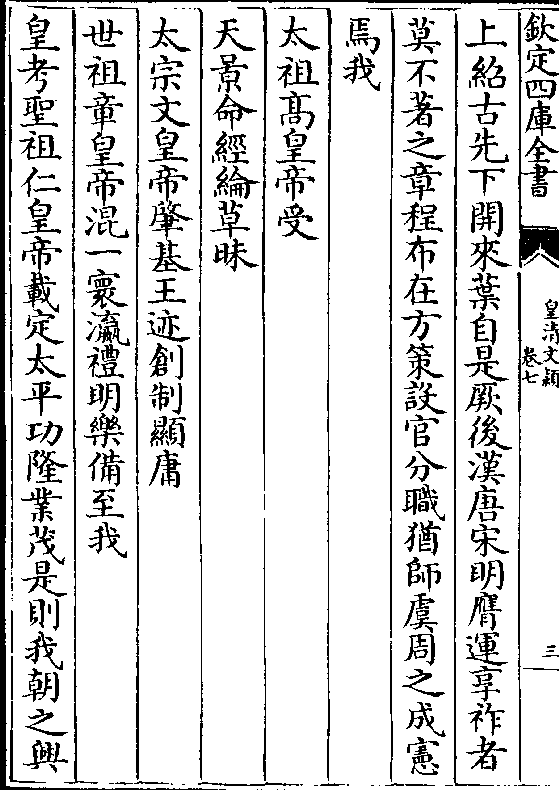 欽定四庫全書
皇清文穎
卷七
三
上紹古先下開來葉自是厥後漢唐宋明膺運享祚者
莫不著之章程布在方策設官分職猶師虞周之成憲
焉我
太祖高皇帝受
天景命經綸草昧
太宗文皇帝肇基王迹創制顯庸
世祖章皇帝混一寰瀛禮明樂備至我
皇考聖祖仁皇帝載定太平功隆業茂是則我朝之興